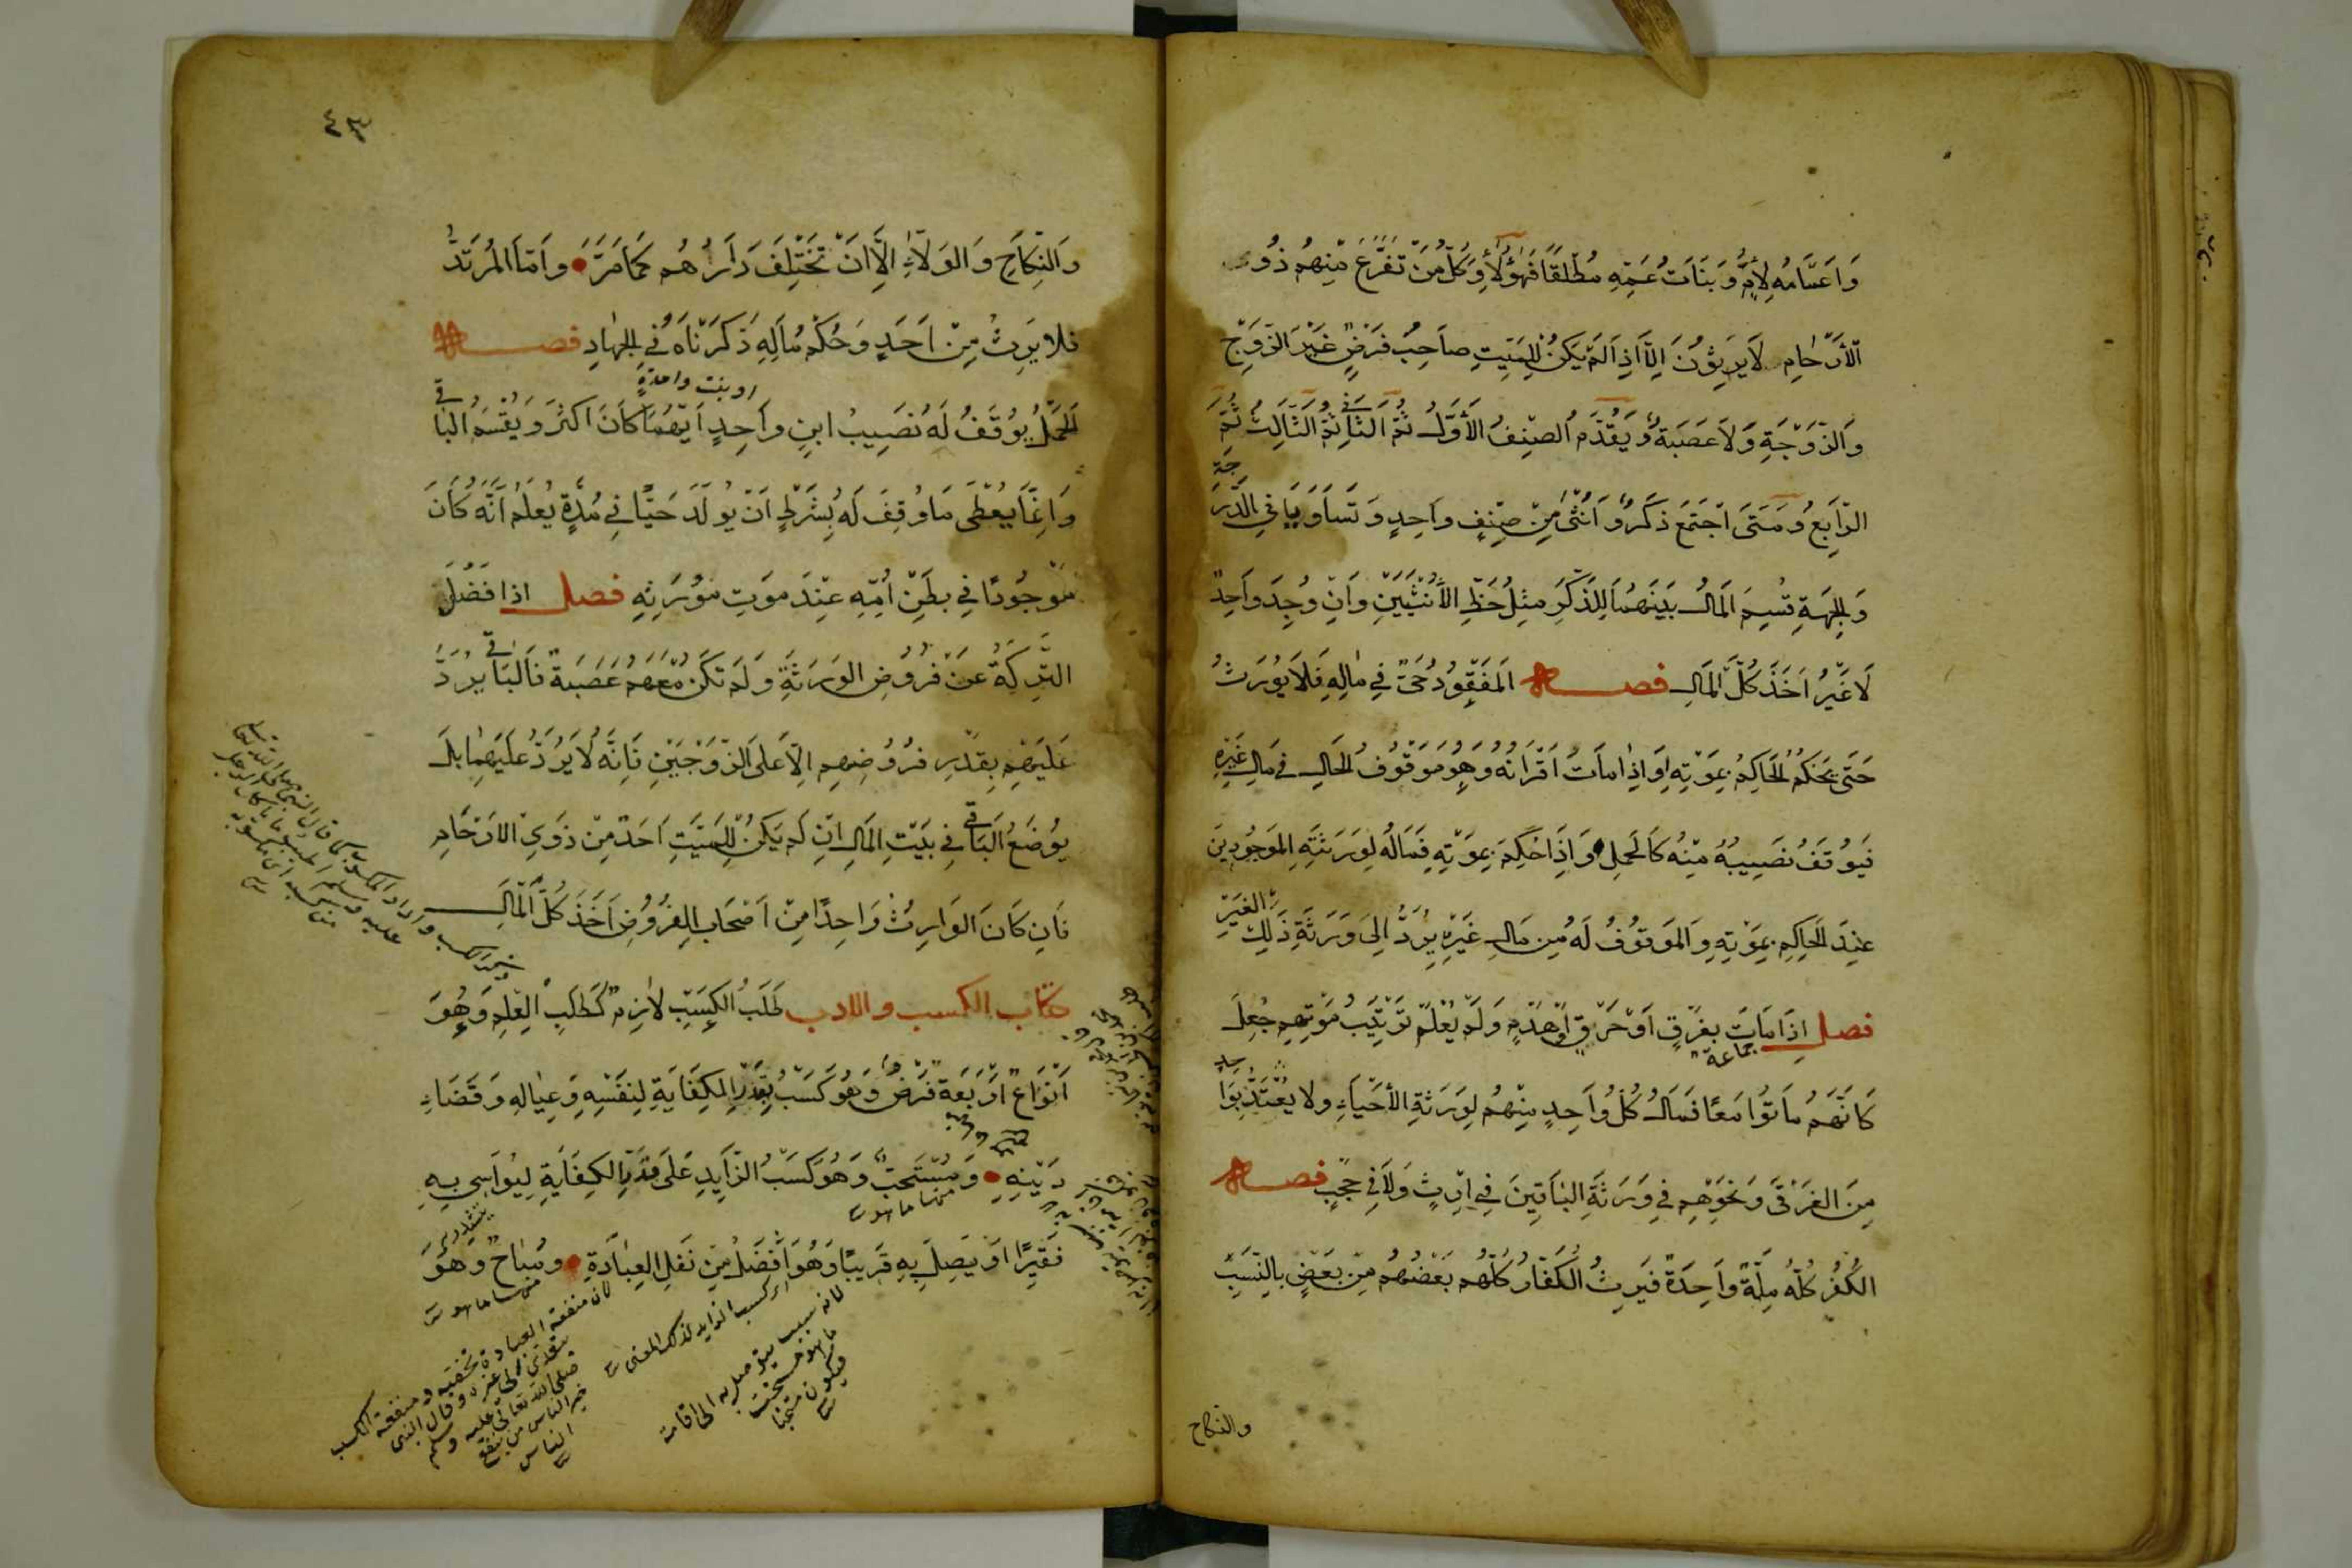 وَاَعمَامُهُ لِأُمٍّ وَبَنَاتُ عَمِّهِ مُطْلَقًا فَهٰؤُلَاءِ وَكُلُّ مَنْ تَفَرَّعَ مِنْهُم ذُوُ
الْأَرْحَامِ لَا يَرِثُونَ اِلَّا اِذَا لَمْ يَكُنْ لِلْمَيِّتِ صَاحِبُ فَرْضٍ غَيْرَ الزَّوْجِ
وَالزَّوْجَةِ وَلَا عَصَبَةٌ وَيُقَدَّمُ الصِّنْفُ الْأَوَّلُ ثُمَّ الثَّانِي ثُمَّ الثَّالِثُ ثُمَّ
الرَّابِعُ وَمَتَى اجْتَمَعَ ذَكَرٌ وَاُنْثَى مِنْ صِنْفٍ وَاحِدٍ وَتَسَاوَيَا فِي الدَّرَجَةِ
وَالْجِهَةِ قُسِمَ الْمَالُ بَيْنَهُمَا لِلذَّكَرِ مِثْلُ حَظِّ الْأُنْثَيَيْنِ وَاِنْ وُجِدَ وَاحِدٌ
لَا غَيْرُ اَخَذَ كُلَّ الْمَالِ فصل اَلْمَفْقُودُ حَيٌّ فِي مَالِهِ فَلَا يُورَثُ
حَتَّى يَحْكُمَ الْحَاكِمُ بِمَوْتِهِ اَوْ اِذَا مَاتَ اَقْرَانُهُ وَهُوَ مَوْقُوفُ الْحَالِ فِي مَالِ غَيْرِهِ
فَيُوقَفُ نَصِيبُهُ مِنْهُ كَالْحَمْلِ وَاِذَا حُكِمَ بِمَوْتِهِ فَمَالُهُ لِوَرَثَتِهِ الْمَوْجُودِينَ
عِنْدَ الْحَاكِمِ بِمَوْتِهِ وَالْمَوْقُوفُ لَهُ مِن مَالِ غَيْرِهِ يُرَدُّ اِلَى وَرَثَةِ ذَلِكَ الْغَيْرِ
فصل اِذَا مَاتَ جماعة بِغَرْقٍ اَوْ حَرْقٍ اَوْ هَدْمٍ وَلَمْ يُعْلَمْ تَرْتِيبُ مَوْتِهِمْ جُعِلَ
كَاَنَّهُمْ مَاتُوا مَعًا فَمَالُ كُلِّ وَاحِدٍ مِنْهُمْ لِوَرَثَةِ الْأَحْيَاءِ وَلَا يُعْتَدُّ بِوَاحِدٍ
مِنَ الْغَرْقَى وَنَحْوِهِمْ فِي وَرَثَةِ الْبَاقِينَ فِي اِرْثٍ وَلَا فِي حَجْبٍ فصل
الْكُفْرُ كُلُّهُ مِلَّةٌ وَاحِدَةٌ فَيَرِثُ الْكُفَّارُ كُلُّهُمْ بَعْضُهُمْ مِنْ بَعْضٍ بِالنَّسَبِ
والنكاح
٤٣
وَالنِّكَاحِ وَالْوَلَاءِ اِلَّا اَنْ تَخْتَلِفَ دَارُهُم كَمَا مَرَّ وَاَمَّا الْمُرْتَدُّ
فَلَا يَرِثُ مِنْ اَحَدٍ وَحُكْمُ مَالِهِ ذَكَرْنَاهُ فِي الْجِهَادِ فصل
او بنت واحدةٍ
اَلْحَمْلُ يُوقَفُ لَهُ نَصِيبُ ابْنٍ وَاحِدٍ اَيُّهُمَا كَانَ اَكْثَرَ وَيُقْسَمُ الْبَاقِي
وَاِنَّمَا يُعْطَى مَا وُقِفَ لَهُ بِشَرْطِ اَنْ يُولَدَ حَيًّا فِي مُدَّةٍ يُعْلَمُ اَنَّهُ كَانَ
مَوْجُودًا فِي بَطْنِ اُمِّهِ عِنْدَ مَوْتِ مُوَرِّثِهِ فصل اذا فَضُلَ
التَّرِكَةُ عَنْ فُرُوضِ الْوَرَثَةِ وَلَمْ تَكُنْ مَعَهُمْ عَصَبَةٌ فَالْبَاقِي يُرَدُّ
عَلَيْهِمْ بِقَدْرِ فُرُوضِهِم اِلَّا عَلَى الزَّوْجَيْنِ فَاِنَّهُ لَا يُرَدُّ عَلَيْهِمَا بَلْ
يُوضَعُ الْبَاقِي فِي بَيْتِ الْمَالِ اِنْ لَمْ يَكُنْ لِلْمَيِّتِ اَحَدٌ مِنْ ذَوِي الْأَرْحَامِ
فَاِنْ كَانَ الْوَارِثُ وَاحِدًا مِنْ اَصْحَابِ الْفُرُوضِ اَخَذَ كُلَّ الْمَالِ
كتاب الكسب والادب طَلَبُ الْكَسْبِ لَازِمٌ كَطَلَبِ الْعِلْمِ وَهُوَ
اَنْوَاعٌ اَرْبَعَةٌ فَرْضٌ وَهُوَ كَسْبٌ بِقَدْرِ الْكِفَايَةِ لِنَفْسِهِ وَعِيَالِهِ وَقَضَاءِ
دَيْنِهِ وَمُسْتَحَبٌّ وَهُوَ كَسْبُ الزَّايِدِ عَلَى قَدْرِ الْكِفَايَةِ لِيُوَاسِيَ بِهِ
منها ما هو
فَقِيرًا اَوْ يَصِلَ بِهِ قَرِيبًا وَهُوَ اَفْضَلُ مِنْ نَفْلِ الْعِبَادَةِ وَمُبَاحٌ وَهُوَ
منها ما هو
اى كسب الزايد لذلك المعنى
لان منفعة العبادة تخصه ومنفعة الكسب
تتعدى الى غيره وقال النبى
صلى الله تعالى عليه وسلم
خير الناس من ينفع
الناس
لانه سبب يتوصل به الى اقامة
ما هو مستحب
فيكون مستحبا